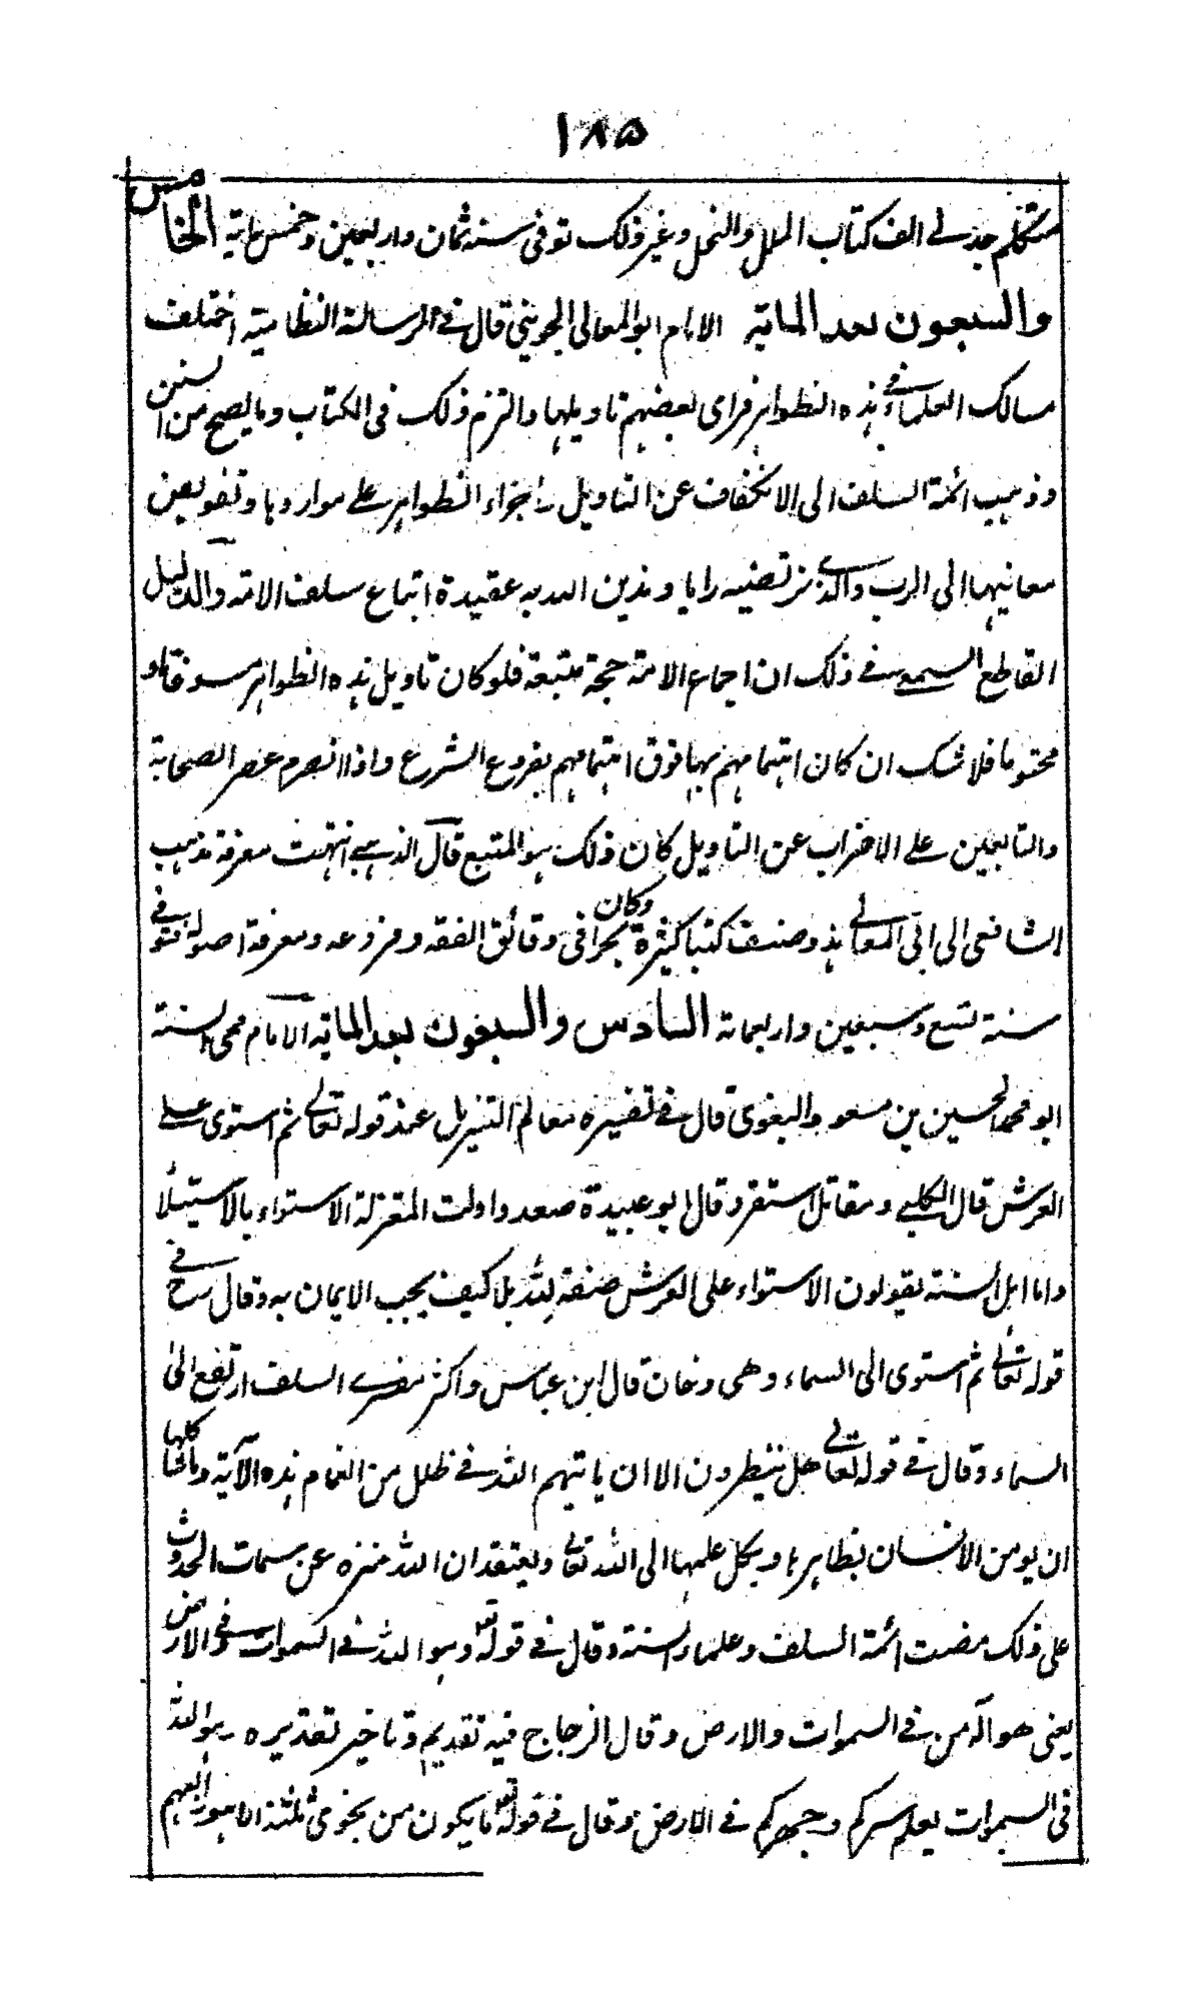 ١٨٥
متكلم جدلى الف كتاب الملل والنحل وغير ذلك توفى سنة ثمان واربعين وخمس ماية الخامس
والسبعون بعد الماية الامام ابو المعالى الجوينى قال فى الرسالة النظامية اختلف
مسالك العلماء فى هذه الظواهر فراى بعضهم تاويلها والتزم ذلك فى الكتاب وما يصح من السنن
وذهب ائمة السلف الى الانكفاف عن التاويل واجراء الظواهر على مواردها وتفويض
معانيها الى الرب والذى نرتضيه رايا وندين الله به عقيدة اتباع سلف الامة والدليل
القاطع السمعى فى ذلك ان اجماع الامة حجة متبعة فلو كان تاويل هذه الظواهر مسوغا او
محتوما فلا شك ان كان اهتمامهم بها فوق اهتمامهم بفروع الشرع واذا انصرم عصر الصحابة
والتابعين على الاضراب عن التاويل كان ذلك هو المتبع قال الذهبى انتهت معرفة مذهب
الشافعى الى ابى المعالى هذا وصنف كتبا كثيرة وكان بحرا فى دقائق الفقه وفروعه ومعرفة اصوله توفى
سنة تسع وسبعين واربعماة السادس والسبعون بعد الماية الامام محى السنة
ابو محمد الحسين بن مسعود البغوى قال فى تفسيره معالم التنزيل عند قوله تعالى ثم استوى على
العرش قال الكلبى ومقاتل استقر وقال ابو عبيدة صعد واولت المعتزلة الاستواء بالاستيلاء
واما اهل السنة يقولون الاستواء على العرش صفة لله بلا كيف يجب الايمان به وقال فى
قوله تعالى ثم استوى الى السماء وهى دخان قال ابن عباس واكثر مفسرى السلف ارتفع الى
السماء وقال فى قوله تعالى هل ينظرون الا ان ياتيهم الله فى ظلل من الغمام هذه الآية ومثالها كلها
ان يومن الانسان بظاهرها ويكل علمها الى الله تعالى ويعتقد ان الله منزه عن سمات الحدوث
على ذلك مضت ائمة السلف وعلماء السنة وقال فى قوله تع وهو الله فى السموات وفى الارض
يعنى هو اله من فى السموات والارض وقال الزجاج فيه تقديم وتاخير تقديره هو الله
فى السموات يعلم سركم وجهركم فى الارض وقال فى قوله تع ما يكون من نجوى ثلثة الا هو رابعهم